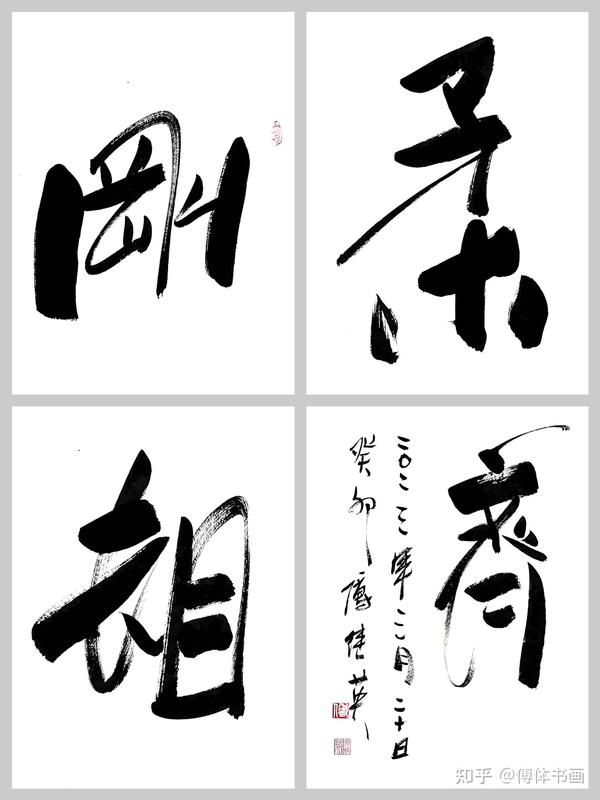 剛
柔
相
齊
二〇二三年三月二十日
癸卯 傅佳英
知乎 @傅体书画